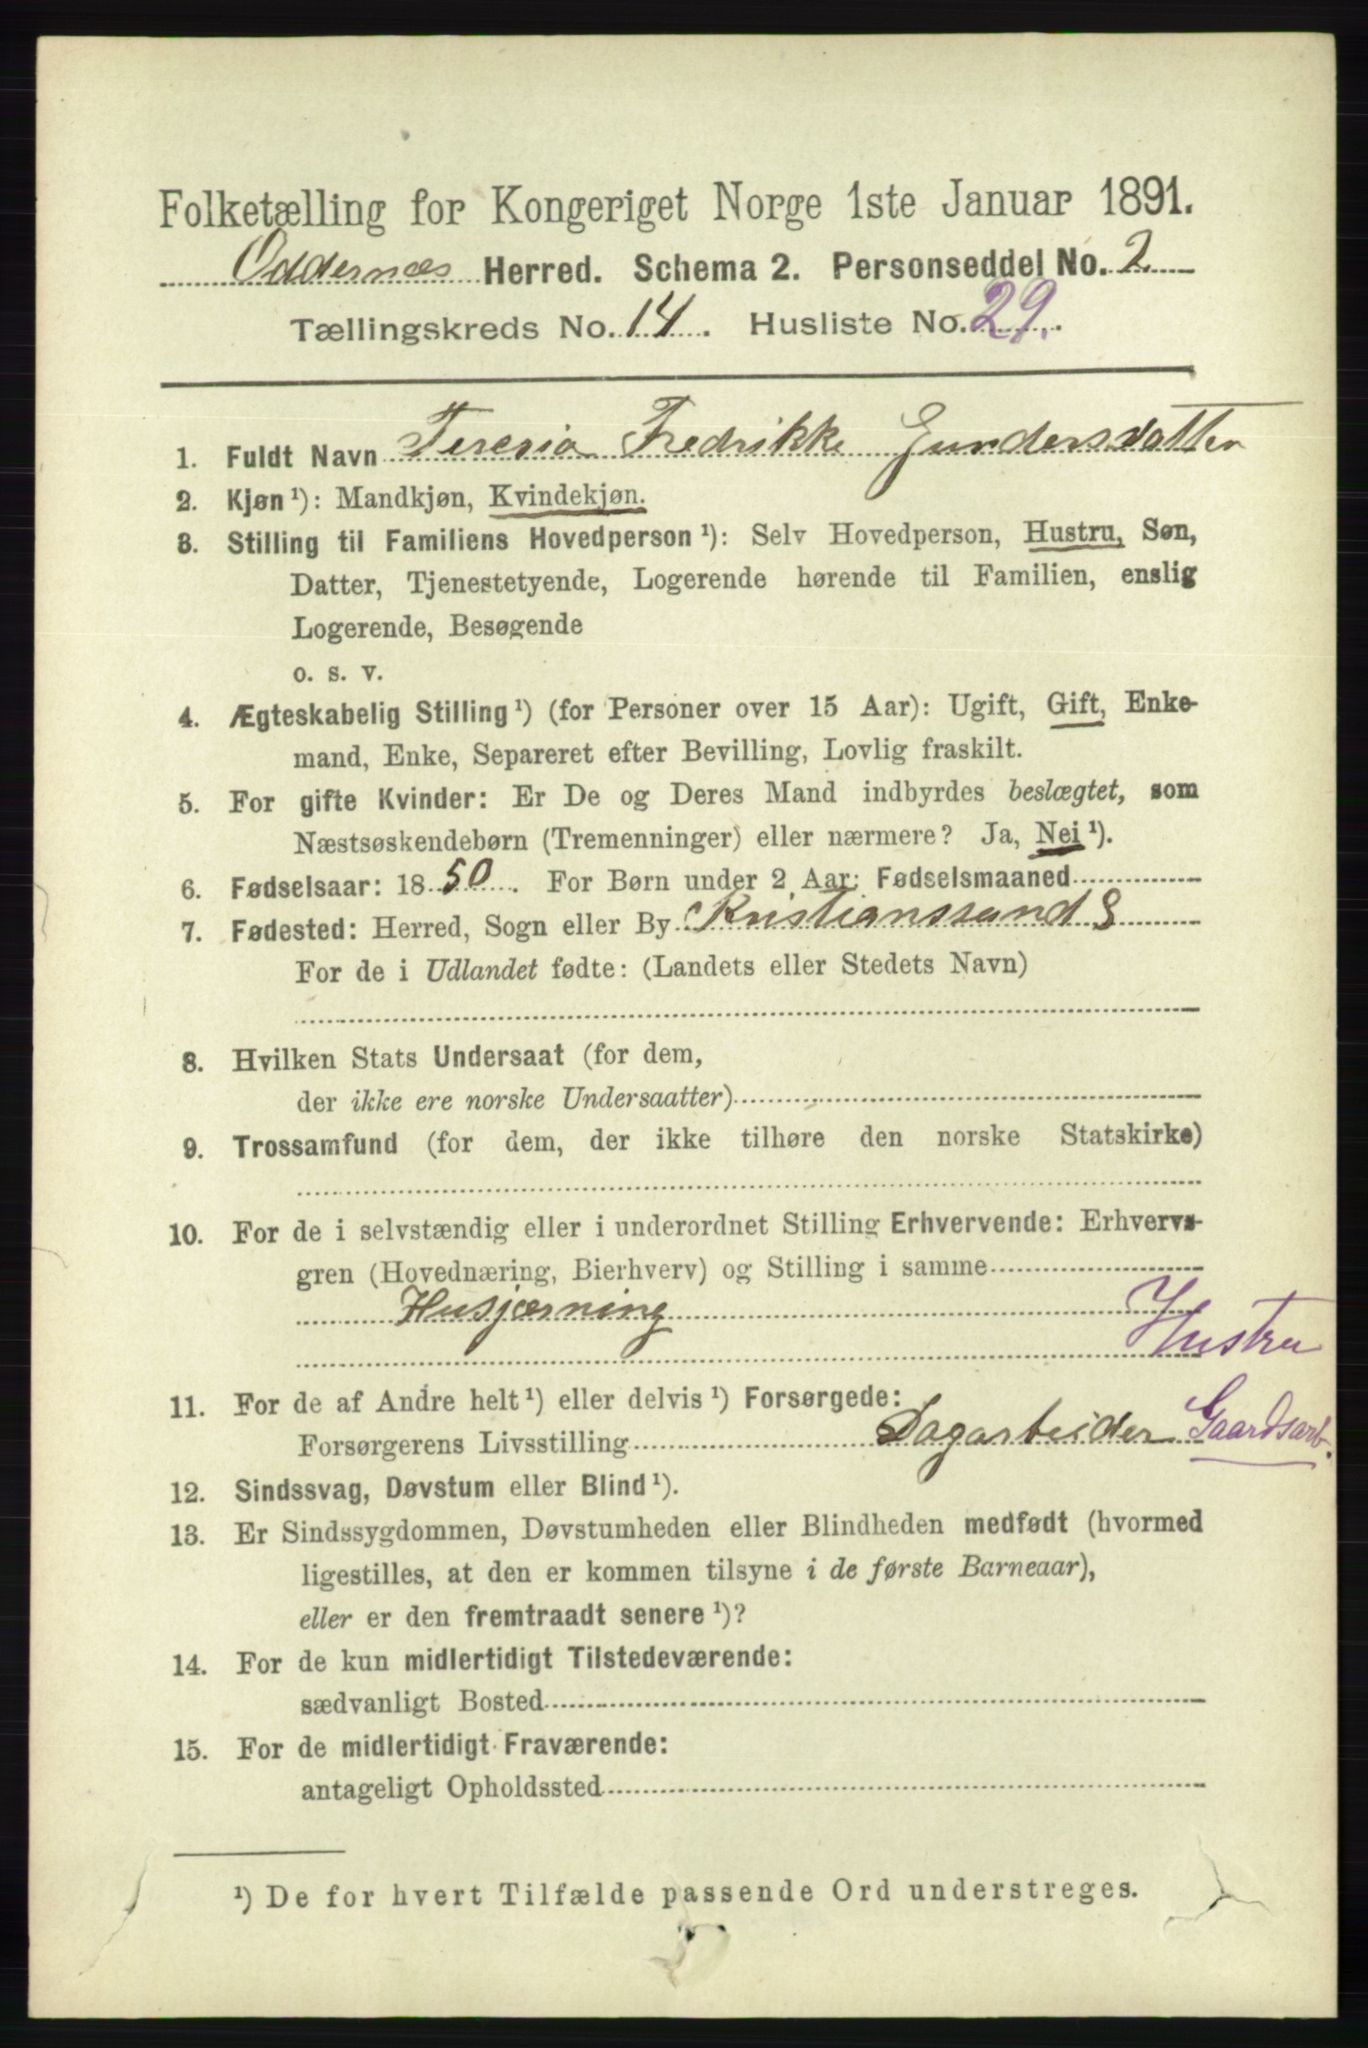 Folketælling for Kongeriget Norge 1ste Januar 1891.
Oddernæs Herred. Schema 2. Personseddel No. 2
Tællingskreds No. 14. Husliste No. 29.
1. Fuldt Navn Teresia Fredrikke Gundersdatter
2. Kjøn ¹): Mandkjøn, Kvindekjøn.
3. Stilling til Familiens Hovedperson ¹): Selv Hovedperson, Hustru, Søn,
Datter, Tjenestetyende, Logerende hørende til Familien, enslig
Logerende, Besøgende
o. s. v.
4. Ægteskabelig Stilling ¹) (for Personer over 15 Aar): Ugift, Gift, Enke-
mand, Enke, Separeret efter Bevilling, Lovlig fraskilt.
5. For gifte Kvinder: Er De og Deres Mand indbyrdes beslægtet, som
Næstsøskendebørn (Tremenninger) eller nærmere? Ja, Nei ¹).
6. Fødselsaar: 1850. For Børn under 2 Aar: Fødselsmaaned
7. Fødested: Herred, Sogn eller By Kristianssand S
For de i Udlandet fødte: (Landets eller Stedets Navn)
8. Hvilken Stats Undersaat (for dem,
der ikke ere norske Undersaatter)
9. Trossamfund (for dem, der ikke tilhøre den norske Statskirke)
10. For de i selvstændig eller i underordnet Stilling Erhvervende: Erhvervs-
gren (Hovednæring, Bierhverv) og Stilling i samme
Husjærning
Hustru
11. For de af Andre helt ¹) eller delvis ¹) Forsørgede:
Forsørgerens Livsstilling Dagarbeider Gaardsarb.
12. Sindssvag, Døvstum eller Blind ¹).
13. Er Sindssygdommen, Døvstumheden eller Blindheden medfødt (hvormed
ligestilles, at den er kommen tilsyne i de første Barneaar),
eller er den fremtraadt senere ¹)?
14. For de kun midlertidigt Tilstedeværende:
sædvanligt Bosted
15. For de midlertidigt Fraværende:
antageligt Opholdssted
¹) De for hvert Tilfælde passende Ord understreges.